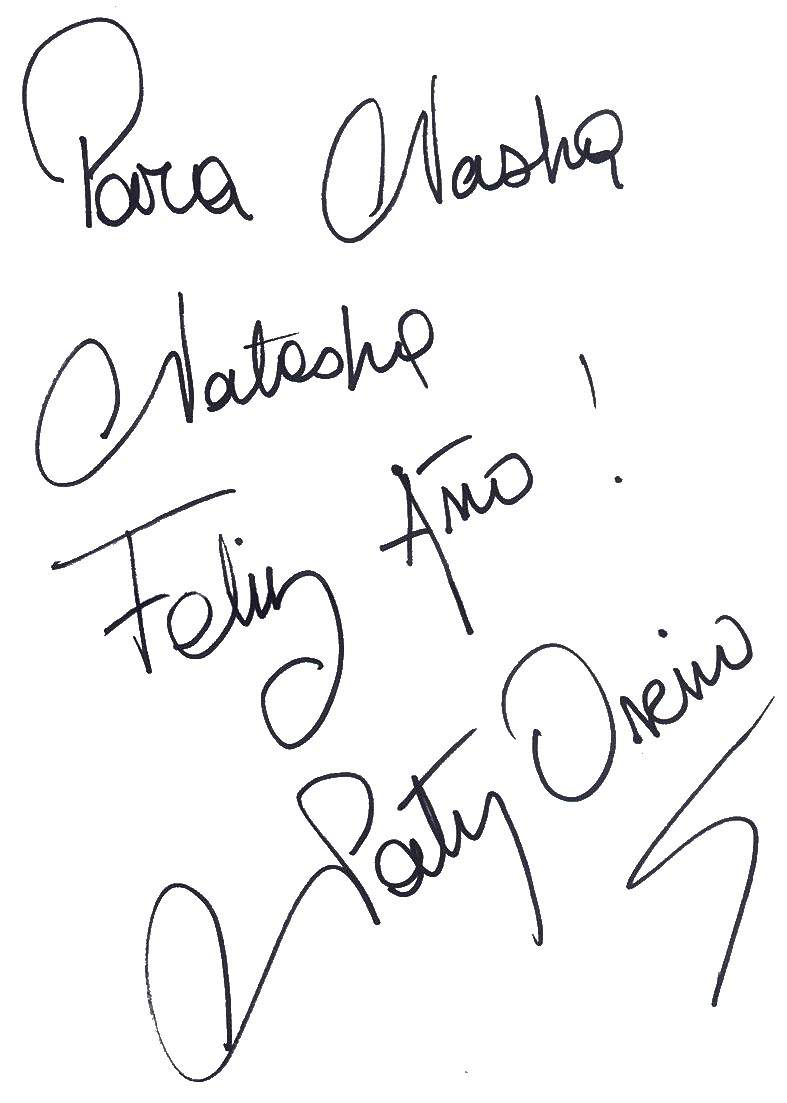 Para Nasha
Natasha
Feliz Año!
Paty Oreiro